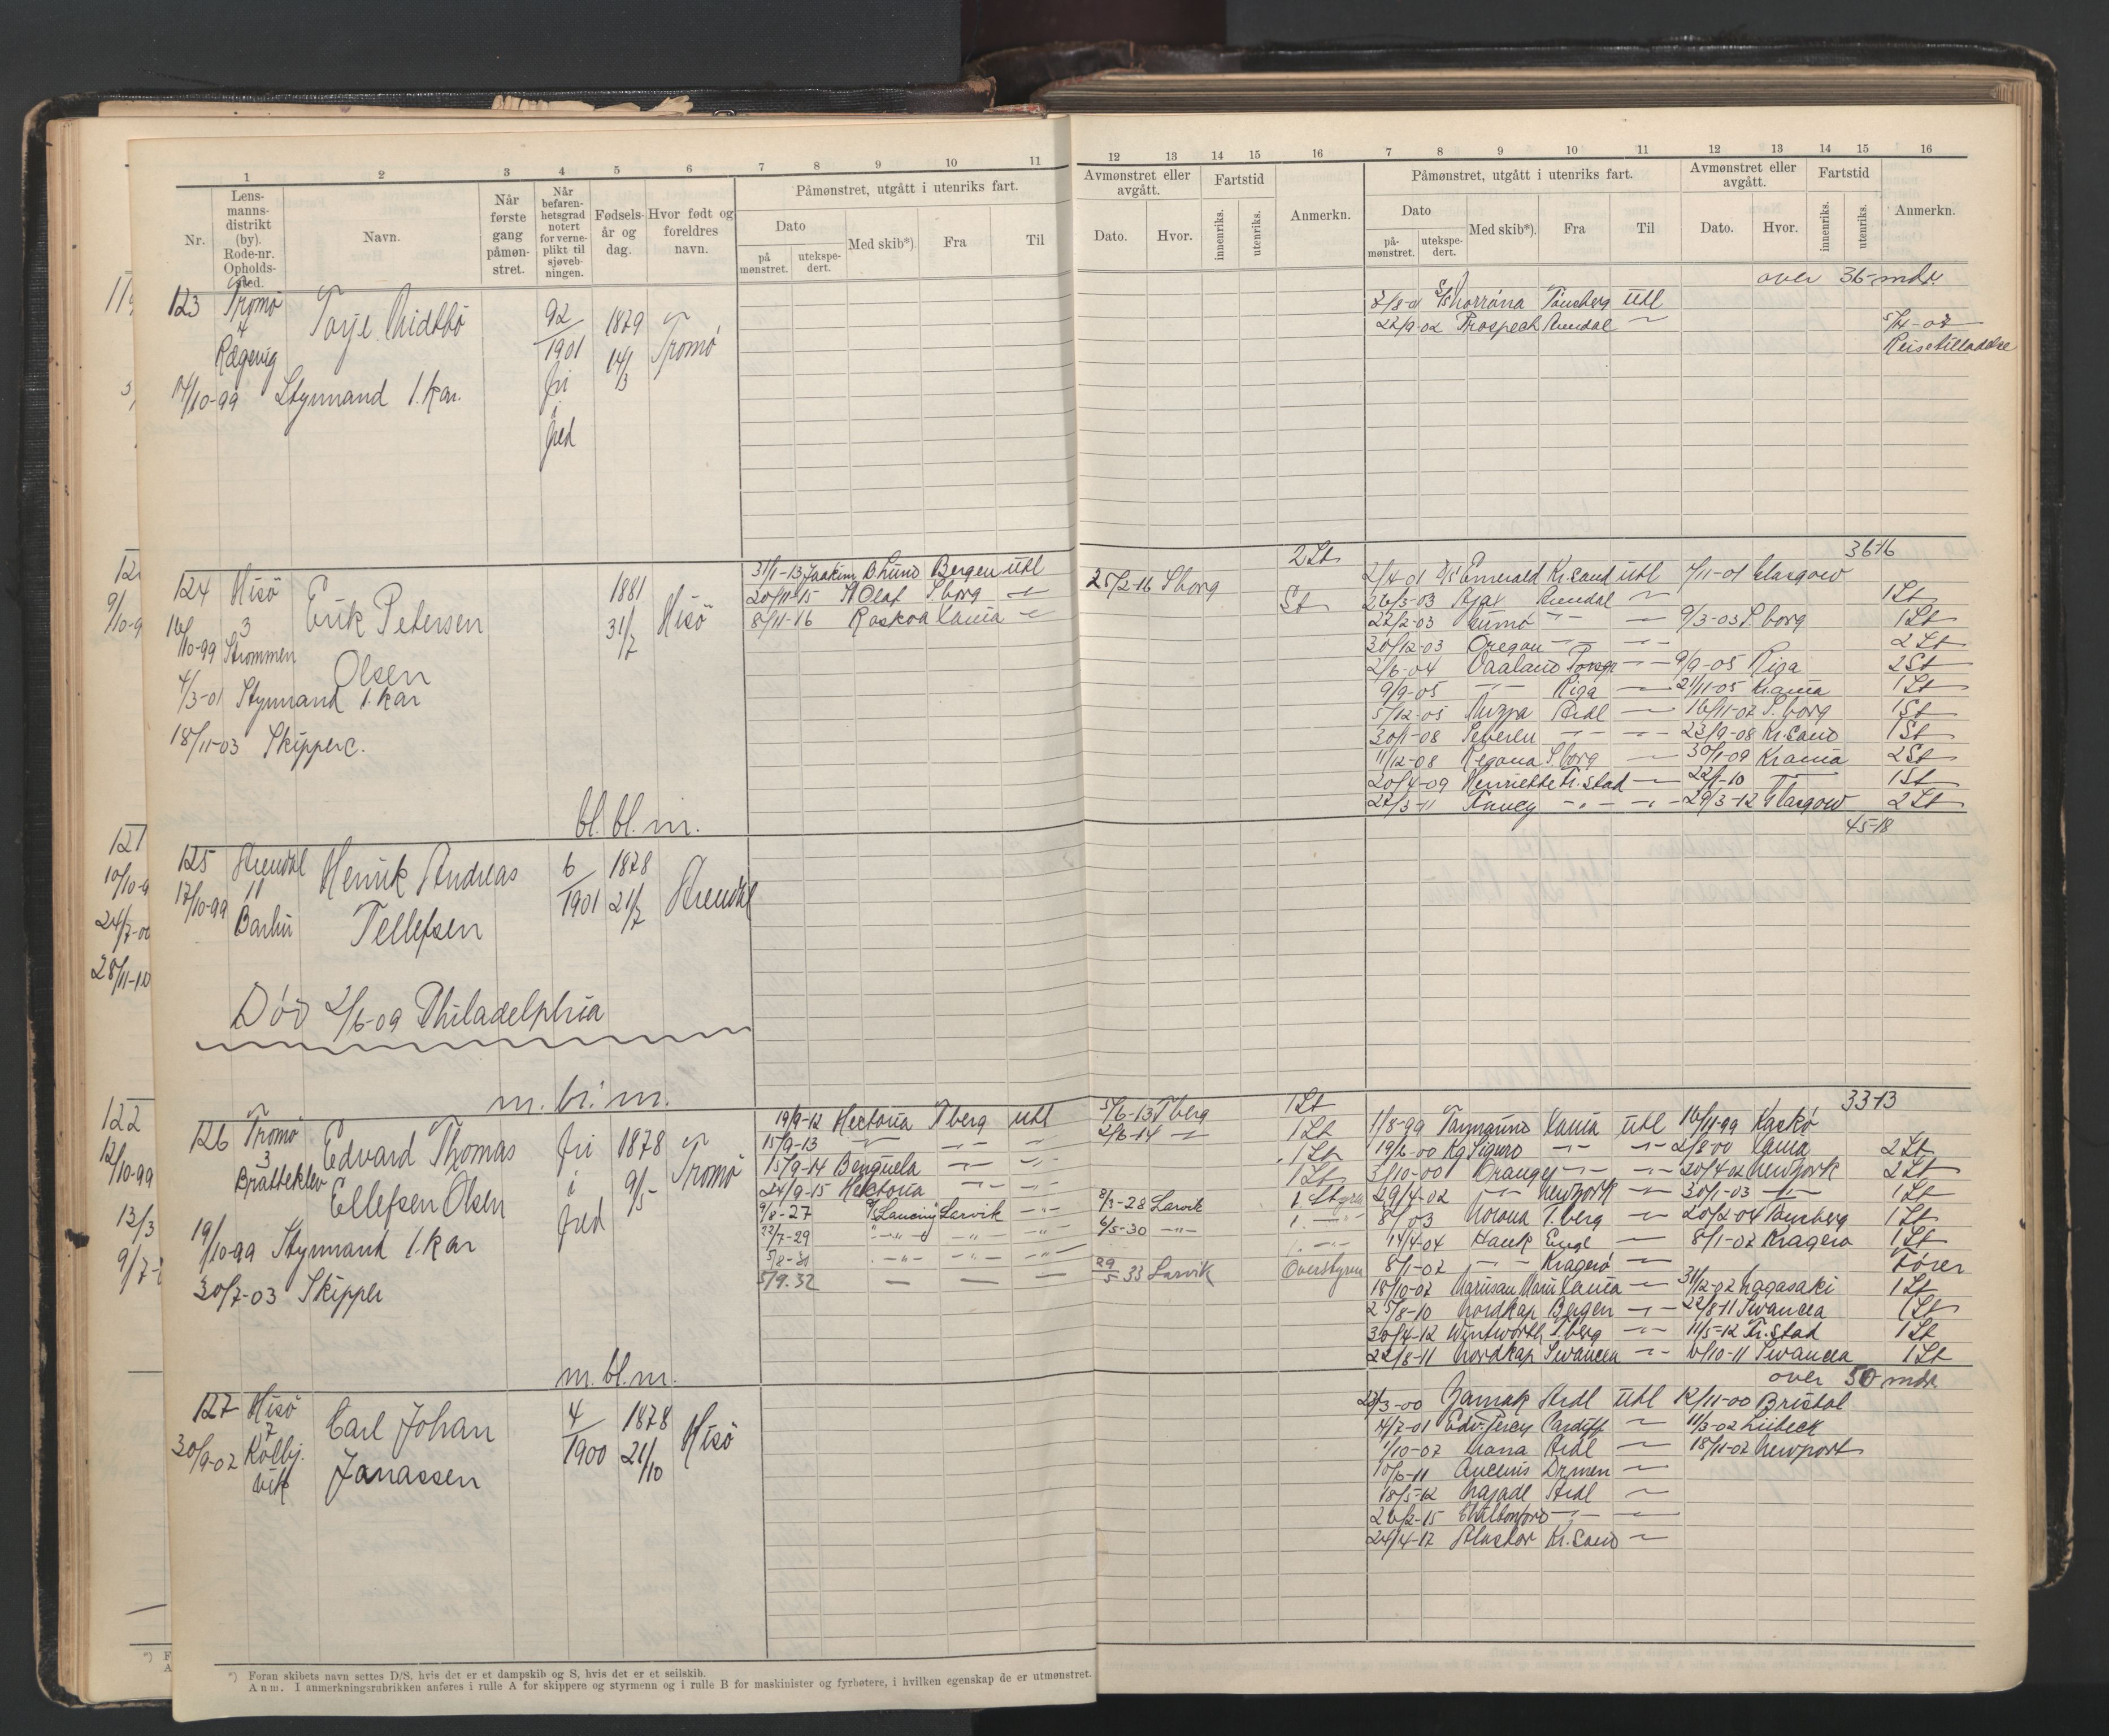 1 2 3 4 5 6 7 8 9 10 11 12 13 14 15 16 7 8 9 10 11 12 13 14 15 16
Nr.
Lens-
manns-
distrikt
(by).
Rode-nr.
Opholds-
sted.
Navn.
Når
første
gang
påmøn-
stret.
Når
befaren-
hetsgrad
notert
for verne-
plikt til
sjøveb-
ningen.
Fødsels-
år og
dag.
Hvor født og
foreldres
navn.
Påmønstret, utgått i utenriks fart.
Dato
på
mønstret.
utekspe-
dert.
Med skib*).
Fra
Til
Avmønstret eller
avgått.
Dato.
Hvor.
Fartstid
innenriks.
utenriks.
Anmerkn.
Påmønstret, utgått i utenriks fart.
Dato
på-
mønstret.
utekspe-
dert.
Med skib*).
Fra
Til
Avmønstret eller
avgått.
Dato.
Hvor.
Fartstid
innenriks.
utenriks.
Anmerkn.
123 Tromö
4
Rægevig
14/10-99 Styrmand 1. kar.
92
1901
fri
i
fred
1879
14/3
Tromö
over 36 mdr.
Tönsberg utl
22/9-02 Prospect Arendal
Reisetilladelse
124 Hisö
3
Strømmen
16/10-99
Erik Petersen
Olsen
4/3-01 Styrmand 1. kar
18/11-03 Skipperc.
1881
31/7
Hisö
31/1-13 Joakim Lund Bergen utl
20/11-15 St Olaf S.borg
8/11-16 Roskva Xania
25/2-16 S.borg
2 St
St
36-16
2/4-01 Emerald Kr.sand utl 7/11-01 Glasgow
26/3-03 Ajax Arendal 1 St
22/2-03 9/3-03 S.borg 1 St
30/12-03 Oregon 2 St
2/6-04 Vaaland Porsgr 9/9-05 Riga 2 St
9/9-05 Riga 21/11-05 Krania 1 St
5/12-05 Mizpa Ardl 16/11-07 S.borg 1 St
30/1-08 Severen 23/9-08 Kr.sand 1 St
11/12-08 Regona S.borg 30/1-09 Krania 2 St
20/4-09 Henriette Fr.stad 22/1-10 1 St
22/3-11 Fancy 29/3-12 Glasgow 2 St
bl. bl. m.
125 Arendal
11
Barbu
17/10-99
Henrik Andreas
Tellefsen
6
1901
1878
21/7
Arendal
45-18
Död 2/6-09 Philadelphia
m. br. m.
126 Tromö
3
Bratteklev
Edvard Thomas
Ellefsen Olsen
19/10-99 Styrmand 1. kar
30/7-03 Skipper
fri
i
fred
1878
9/5
Tromö
19/9-12 Hectoria T.berg utl 5/6-13 T.berg 1 St
15/9-13 2/6-14 1 St
15/9-14 Benguela 1 St
24/9-15 Hektoria 1 St
9/8-27 Lancing Larvik 8/3-28 Larvik 1. Styrm
22/7-29 6/5-30 1.
5/8-31
5/9.32 29/5 33 Larvik Overstyrm
33-13
1/8-99 Xania utl 16/11-99 Kaskö
19/6-00 Kg Sigurd 2/8-00 Xania 2 St
3/10-00 Orange 20/4-02 Newyork 2 St
29/4-02 Newyork 30/1-03 1 St
8/ 03 T.berg 20/2-04 Tönsberg 1 St
14/4-04 Hauk Engl 8/1-07 Kragerö 1 St
8/1-07 Kragerö Förer
18/10-07 Xania 31/12-07 Nagasaki 1 St
25/8-10 Nordkap Bergen 22/8-11 Swancea 1 St
30/4-12 Wintworth T.berg 11/5-12 Fr.stad 1 St
22/8-11 Nordkap Swancea 6/10-11 Swancea 1 St
m. bl. m.
127 Hisö
7
Kolbj.
vik
30/9-02
Carl Johan
Jonassen
4
1900
1878
21/10
Hisö
over 50 mdr.
23/3-00 Ardl utl 12/11-00 Bristol
4/7-01 Edv. Percy Cardiff 11/3-02 Lübeck
1/10-07 Ardl 18/11-07 Newport
10/6-11 Drmen
18/5-12 Najade Ardl
26/2-15
24/4-17 Kr.sand
*) Foran skibets navn settes D/S, hvis det er et dampskib og S, hvis det er et seilskib.
Anm. I anmerkningsrubrikken anføres i rulle A for skippere og styrmenn og i rulle B for maskinister og fyrbøtere, i hvilken egenskap de er utmønstret.